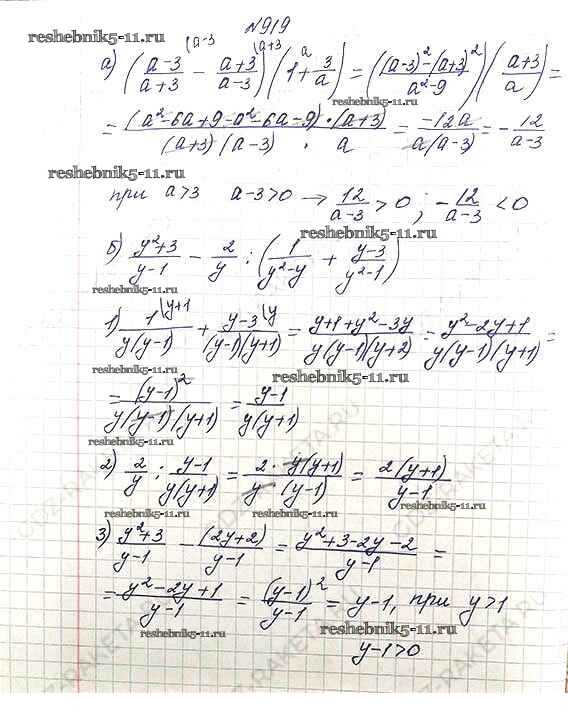 №919
reshebnik5-11.ru
а) ((a-3)/(a+3) \a-3 - (a+3)/(a-3) \a+3) (1 \a + 3/a) = (((a-3)² - (a+3)²)/(a²-9)) ((a+3)/a) =
reshebnik5-11.ru
= ((a²-6a+9-a²-6a-9)·(a+3))/((a+3)(a-3)·a) = -12a/(a(a-3)) = -12/(a-3)
reshebnik5-11.ru
при a>3 a-3>0 → 12/(a-3) > 0; -12/(a-3) < 0
reshebnik5-11.ru
б) (y²+3)/(y-1) - 2/y : (1/(y²-y) + (y-3)/(y²-1))
reshebnik5-11.ru
1) 1/(y(y-1)) \y+1 + (y-3)/((y-1)(y+1)) \y = (y+1+y²-3y)/(y(y-1)(y+2)) = (y²-2y+1)/(y(y-1)(y+1)) =
reshebnik5-11.ru
= (y-1)²/(y(y-1)(y+1)) = (y-1)/(y(y+1))
reshebnik5-11.ru
2) 2/y : (y-1)/(y(y+1)) = (2·y(y+1))/(y(y-1)) = 2(y+1)/(y-1)
reshebnik5-11.ru reshebnik5-11.ru reshebnik5-11.ru
3) (y²+3)/(y-1) - (2y+2)/(y-1) = (y²+3-2y-2)/(y-1) =
= (y²-2y+1)/(y-1) = (y-1)²/(y-1) = y-1, при y>1
reshebnik5-11.ru reshebnik5-11.ru
y-1>0